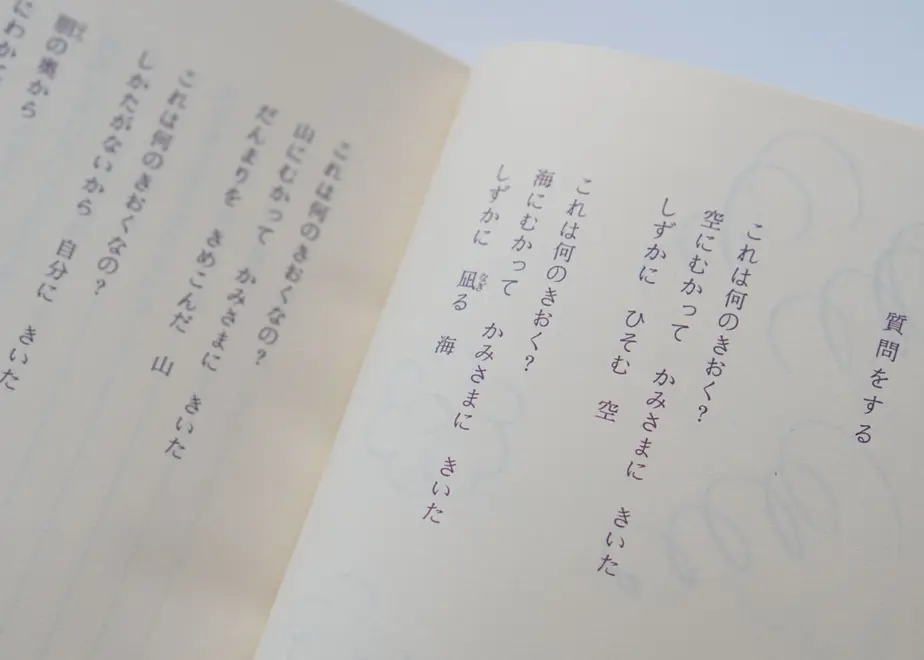 質問をする
これは何のきおく?
空にむかって かみさまに きいた
しずかに ひそむ 空
これは何のきおく?
海にむかって かみさまに きいた
なぎ
しずかに 凪る 海
これは何のきおくなの?
山にむかって かみさまに きいた
だんまりを きめこんだ 山
これは何のきおくなの?
しかたがないから 自分に きいた
の奥から
にわか